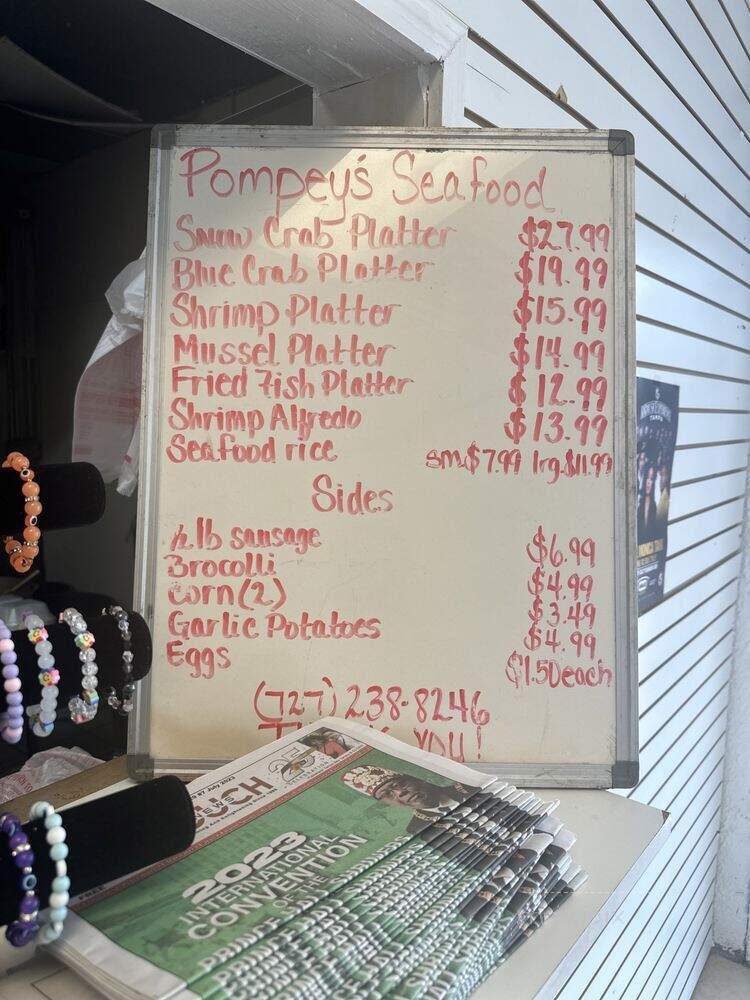 Pompey's Seafood
Snow Crab Platter $27.99
Blue Crab Platter $19.99
Shrimp Platter $15.99
Mussel Platter $14.99
Fried Fish Platter $12.99
Shrimp Alfredo $13.99
Seafood rice sm$7.99 lrg.$11.99
Sides
1/2 lb sausage $6.99
Brocolli $4.99
corn (2) $3.49
Garlic Potatoes $4.99
Eggs $1.50each
(727) 238-8246
YOU!
25
NEWS
FREE
2023
INTERNATIONAL
CONVENTION
OF THE